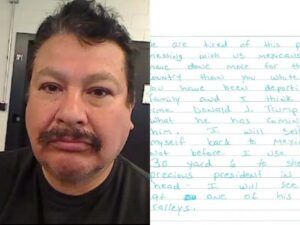 e are tired of this p
messing with us mexicans
have done more for the
country than you white
ou have been deporti
family and I think
ime Donald J. Trump
what he has coming
him. I will self
myself back to Mexico
not before I use
30 yard 6 to sho
precious president in
head - I will see
at one of his
ralleys.